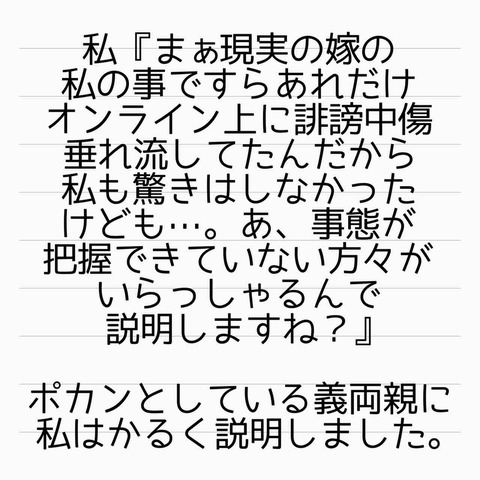 私『まぁ現実の嫁の
私の事ですらあれだけ
オンライン上に誹謗中傷
垂れ流してたんだから
私も驚きはしなかった
けども…。あ、事態が
把握できていない方々が
いらっしゃるんで
説明しますね？』
ポカンとしている義両親に
私はかるく説明しました。